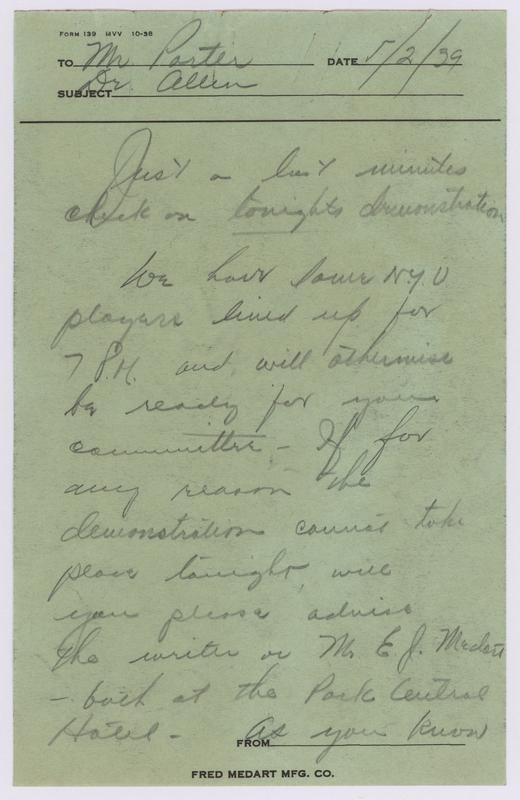 FORM 139 MVV 10-38
TO Mr Porter DATE 5/2/39
Dr Allen
SUBJECT
Just a last minutes
check on tonights demonstration
We have some N.Y.U
players lined up for
7 P.M. and will otherwise
be ready for your
committee - If for
any reason the
demonstration cannot take
place tonight, will
you please advise
the writer or Mr E. J. Medart
- both at the Park Central
Hotel - As you know
FROM
FRED MEDART MFG. CO.